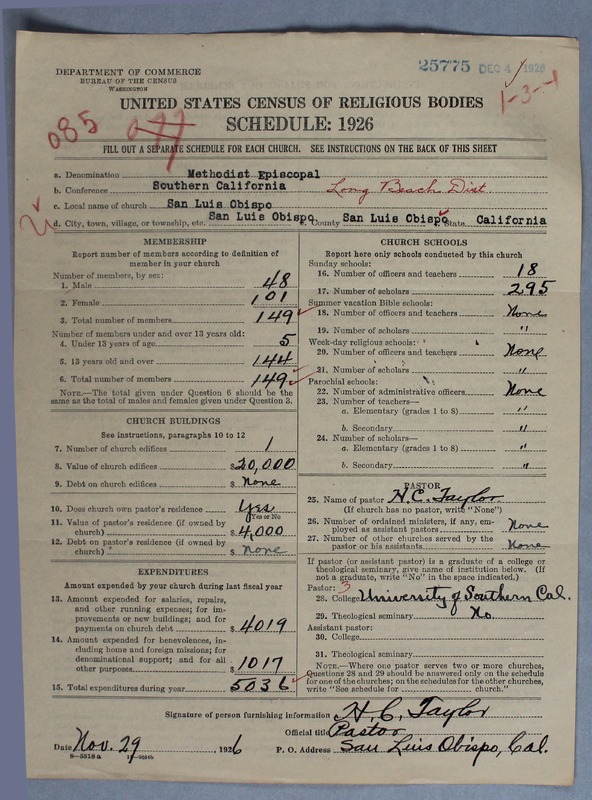 25775 DEC 4 1926
DEPARTMENT OF COMMERCE
BUREAU OF THE CENSUS
WASHINGTON
1-3-1
UNITED STATES CENSUS OF RELIGIOUS BODIES
085
077
SCHEDULE: 1926
FILL OUT A SEPARATE SCHEDULE FOR EACH CHURCH. SEE INSTRUCTIONS ON THE BACK OF THIS SHEET
a. Denomination Methodist Episcopal
b. Conference Southern California Long Beach Dist.
c. Local name of church San Luis Obispo
d. City, town, village, or township, etc. San Luis Obispo e. County San Luis Obispo f. State California
MEMBERSHIP
Report number of members according to definition of
member in your church
Number of members, by sex:
1. Male 48
2. Female 101
3. Total number of members 149
Number of members under and over 13 years old:
4. Under 13 years of age 5
5. 13 years old and over 144
6. Total number of members 149
NOTE.—The total given under Question 6 should be the
same as the total of males and females given under Question 3.
CHURCH BUILDINGS
See instructions, paragraphs 10 to 12
7. Number of church edifices 1
8. Value of church edifices $20,000
9. Debt on church edifices $ None
10. Does church own pastor's residence Yes
Yes or No
11. Value of pastor's residence (if owned by
church) $4,000
12. Debt on pastor's residence (if owned by
church) $ None
EXPENDITURES
Amount expended by your church during last fiscal year
13. Amount expended for salaries, repairs,
and other running expenses; for im-
provements or new buildings; and for
payments on church debt $ 4019
14. Amount expended for benevolences, in-
cluding home and foreign missions; for
denominational support; and for all
other purposes $ 1017
15. Total expenditures during year $ 5036
CHURCH SCHOOLS
Report here only schools conducted by this church
Sunday schools:
16. Number of officers and teachers 18
17. Number of scholars 295
Summer vacation Bible schools:
18. Number of officers and teachers None
19. Number of scholars "
Week-day religious schools:
20. Number of officers and teachers None
21. Number of scholars "
Parochial schools:
22. Number of administrative officers None
23. Number of teachers—
a. Elementary (grades 1 to 8) "
b. Secondary "
24. Number of scholars—
a. Elementary (grades 1 to 8) "
b. Secondary "
PASTOR
25. Name of pastor H. C. Taylor
(If church has no pastor, write "None")
26. Number of ordained ministers, if any, em-
ployed as assistant pastors None
27. Number of other churches served by the
pastor or his assistants None
If pastor (or assistant pastor) is a graduate of a college or
theological seminary, give name of institution below. (If
not a graduate, write "No" in the space indicated.)
Pastor: 3
28. College University of Southern Cal.
29. Theological seminary No.
Assistant pastor:
30. College
31. Theological seminary
NOTE.—Where one pastor serves two or more churches,
Questions 28 and 29 should be answered only on the schedule
for one of the churches; on the schedules for the other churches,
write "See schedule for church."
Signature of person furnishing information H. C. Taylor
Official title Pastor
Date Nov. 29, 1926 P. O. Address San Luis Obispo, Cal.
8—5518a